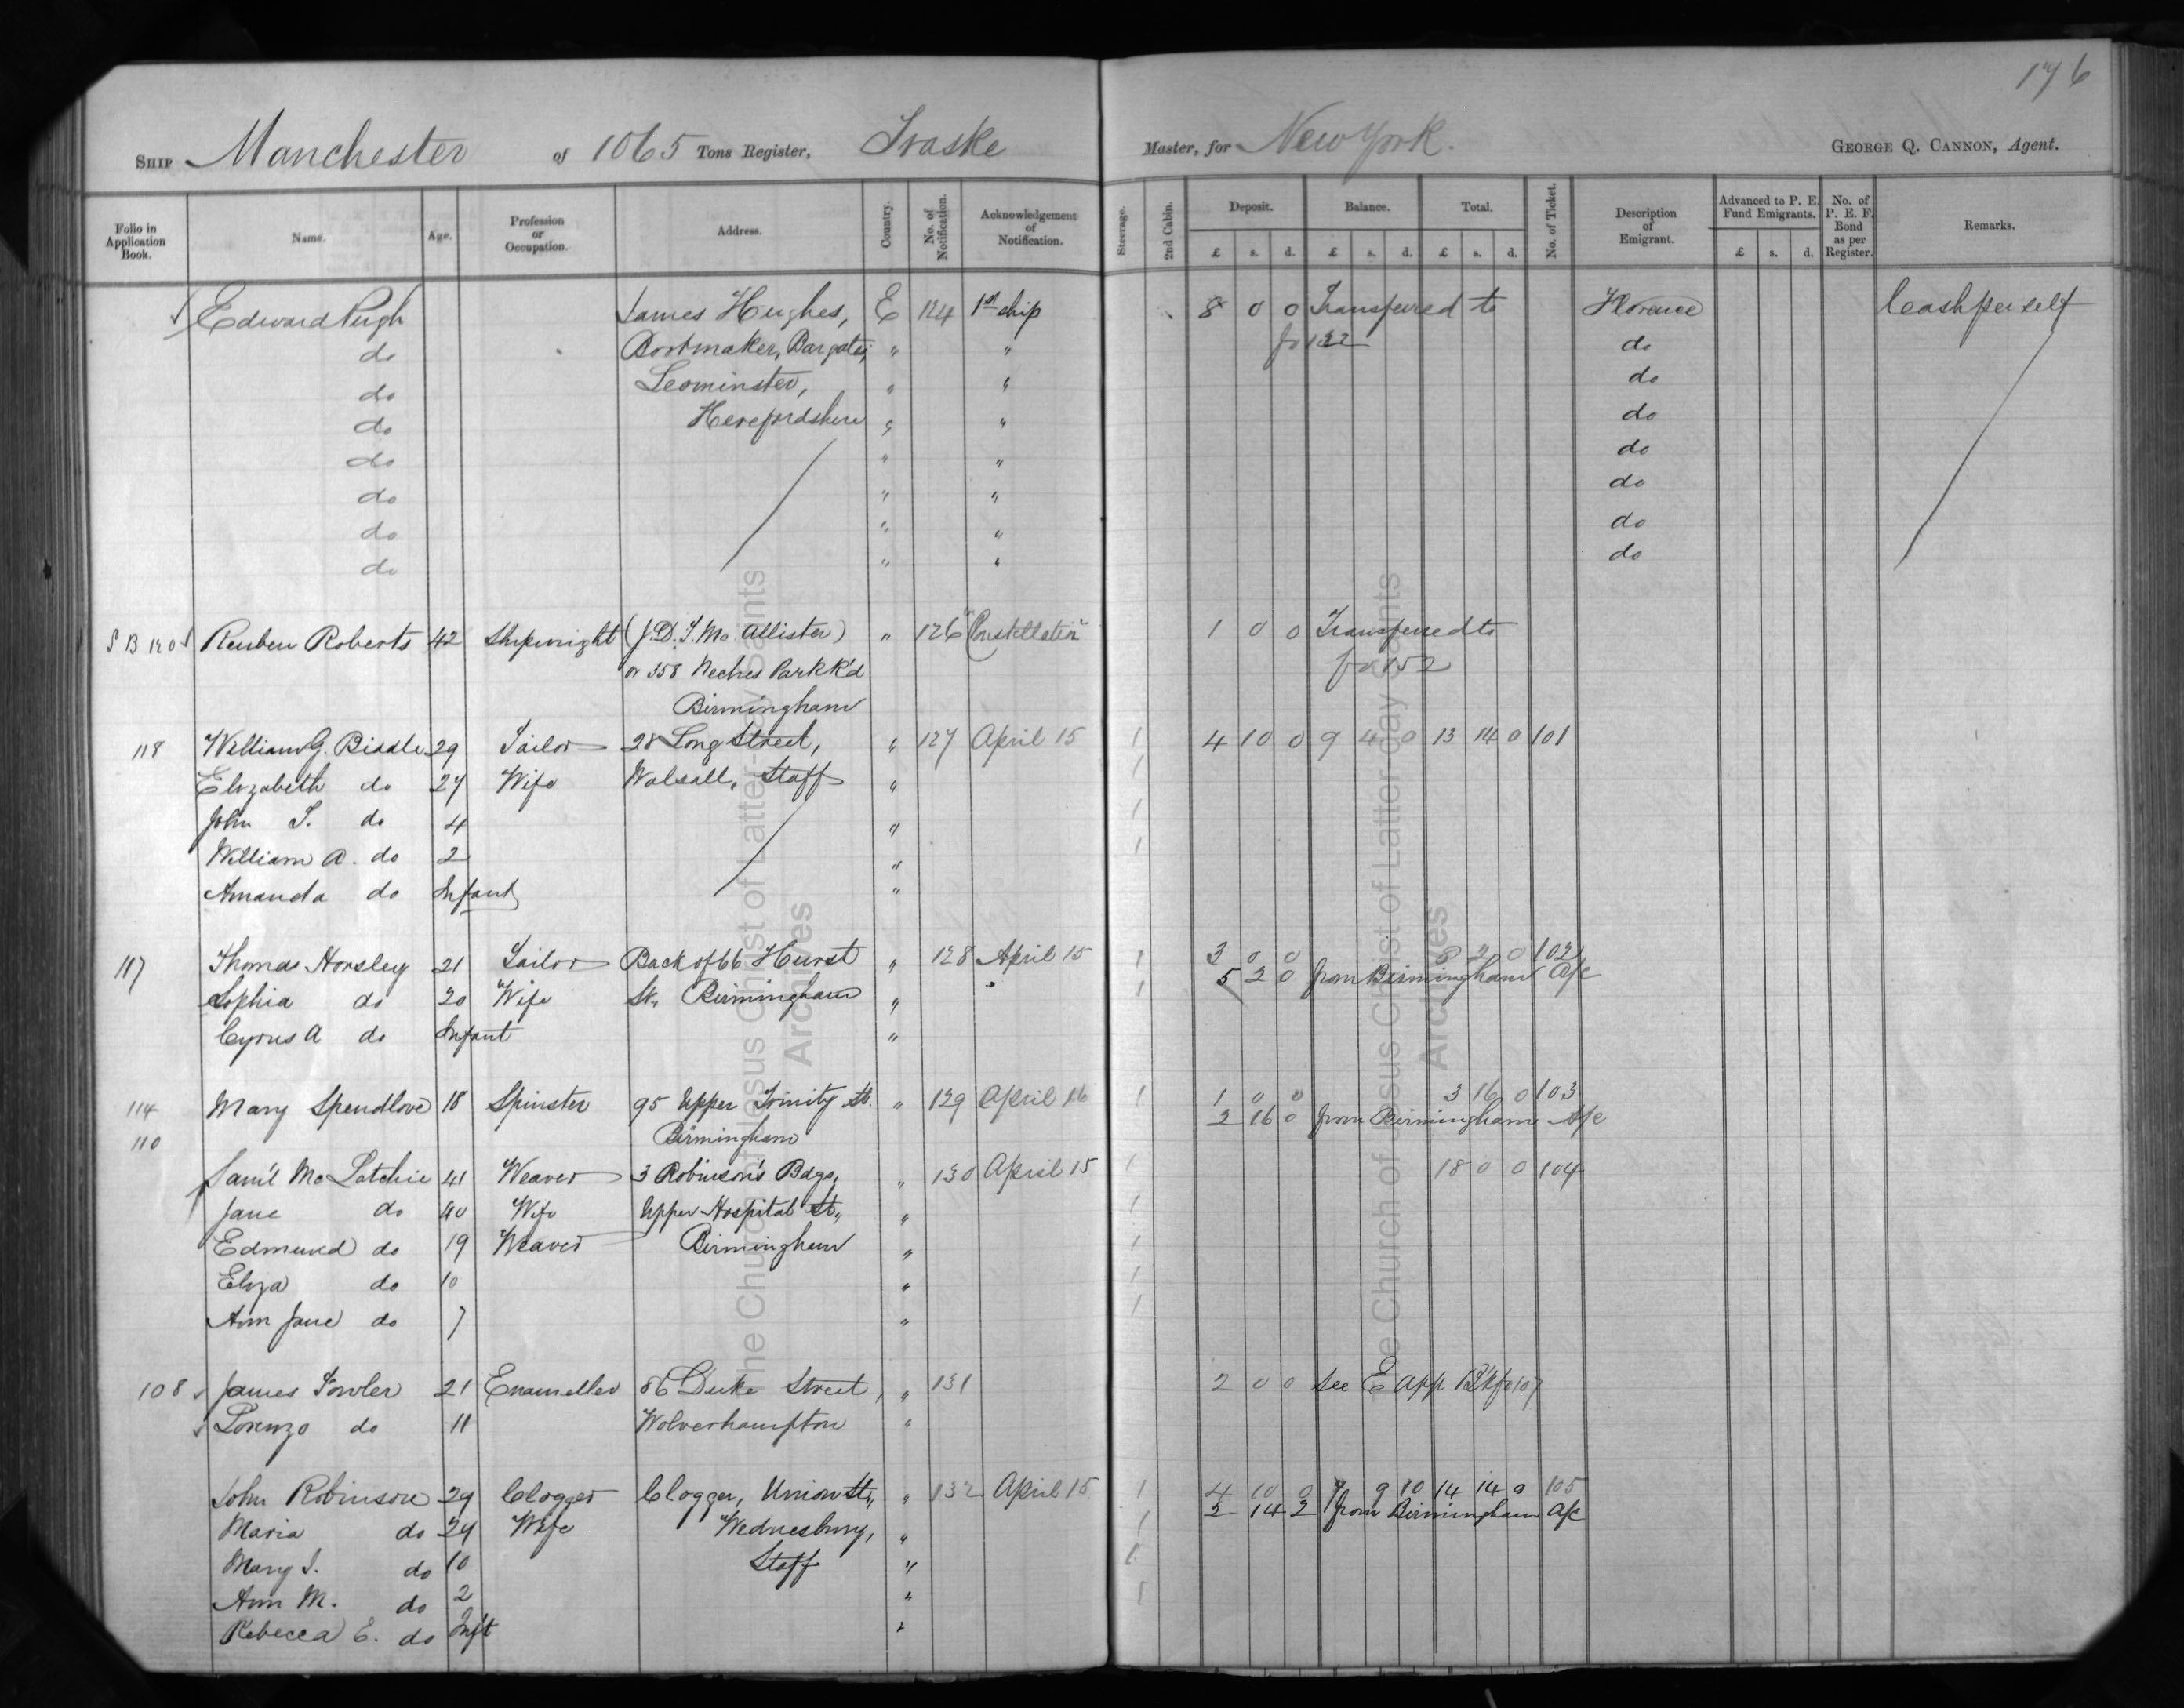 176
SHIP Manchester of 1065 Tons Register, Traske Master, for New York. GEORGE Q. CANNON, Agent.
Folio in Application Book. Name. Age. Profession or Occupation. Address. Country. No. of Notification. Acknowledgement of Notification. Steerage. 2nd Cabin. Deposit. Balance. Total. No. of Ticket. Description of Emigrant. Advanced to P. E. Fund Emigrants. No. of P. E. F. Bond as per Register. Remarks.
£ s. d. £ s. d. £ s. d. £ s. d.
Edward Pugh James Hughes, E 124 1st ship 8 0 0 Transferred to Florence Cash per self
do Bootmaker, Bargates, " " fo 122 do
do Leominster, " " do
do Herefordshire " " do
do " " do
do " " do
do " " do
do " " do
S B 120 Reuben Roberts 42 Shipwright (J. D. T. Mc Allister) " 126 "Constellation" 1 0 0 Transferred to
or 358 Neches Park R'd fo 152
Birmingham
118 William G. Biddle 29 Tailor 28 Long Street, " 127 April 15 1 4 10 0 9 4 0 13 14 0 101
Elizabeth do 27 Wife Walsall, Staff " 1
John T. do 4 " 1
William A. do 2 " 1
Amanda do Infant "
117 Thomas Horsley 21 Tailor Back of 66 Hurst " 128 April 15 1 3 0 0 8 2 0 102
Sophia do 20 Wife St., Birmingham " " 1 5 2 0 from Birmingham A/c
Cyrus A do Infant "
114 Mary Spendlove 18 Spinster 95 Upper Trinity St. " 129 April 16 1 1 0 0 3 16 0 103
110 Birmingham 2 16 0 from Birmingham A/c
Sam'l Mc Latchie 41 Weaver 3 Robinson's Bdgs, " 130 April 15 1 18 0 0 104
Jane do 40 Wife Upper Hospital St., " 1
Edmund do 19 Weaver Birmingham " 1
Eliza do 10 " 1
Ann Jane do 7 " 1
108 James Fowler 21 Enameller 86 Duke Street, " 131 2 0 0 See E App Bk fo 107
Lorenzo do 11 Wolverhampton "
John Robinson 29 Clogger Clogger, Union St., " 132 April 15 1 4 10 0 7 9 10 14 14 0 105
Maria do 29 Wife Wednesbury, " 1 2 14 2 from Birmingham A/c
Mary J. do 10 Staff " 1
Ann M. do 2 " 1
Rebecca E. do Inft "
The Church of Jesus Christ of Latter-day Saints
Archives
The Church of Jesus Christ of Latter-day Saints
Archives